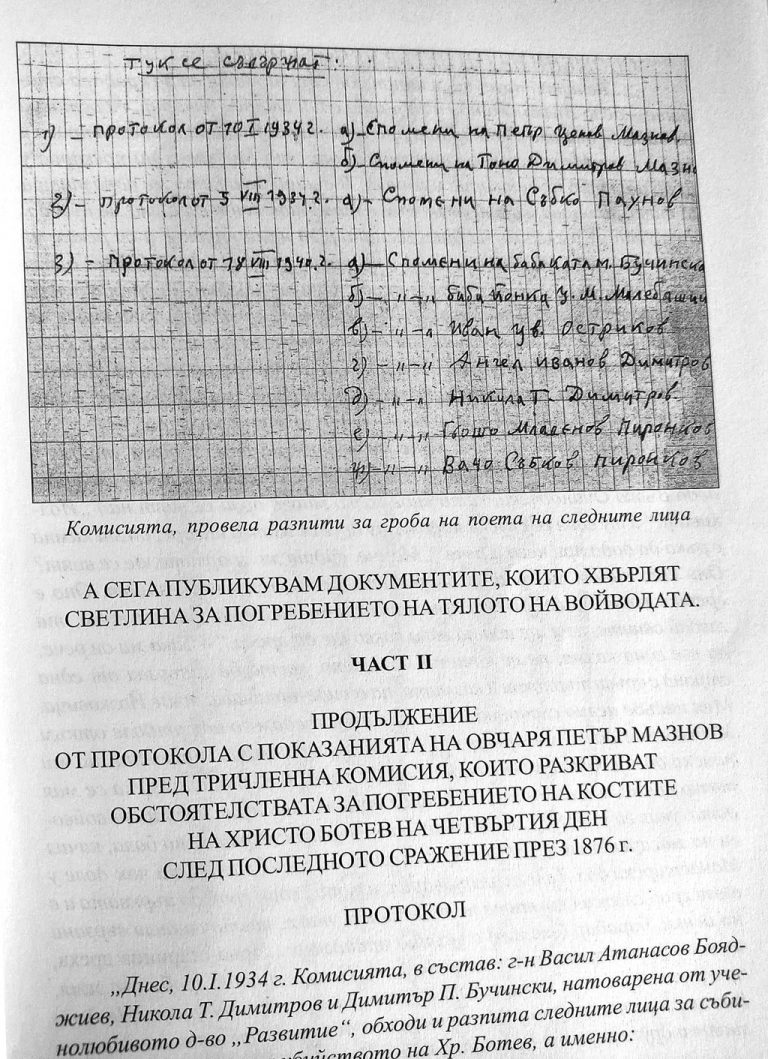 Тук се съдържат:
1) – Протокол от 10 I 1934 г. а) – Спомени на Петър Ценов Мазнов
б) – Спомени на Тоно Димитров Мазно
2) – Протокол от 5 VIII 1934 г. а) – Спомени на Събко Паунов
3) – Протокол от 18 VIII 1940 г. а) – Спомени на баба Ката М. Бучинска
б) – „ – „ баба Йонка Ц. М. Малебашки
в) – „ – „ Иван Цв. Остриков
г) – „ – „ Ангел Иванов Димитров
д) – „ – „ Никола Т. Димитров.
е) – „ – „ Гьошо Младенов Пиронков
ж) – „ – „ Вачо Събков Пиронков
Комисията, провела разпити за гроба на поета на следните лица
А СЕГА ПУБЛИКУВАМ ДОКУМЕНТИТЕ, КОИТО ХВЪРЛЯТ
СВЕТЛИНА ЗА ПОГРЕБЕНИЕТО НА ТЯЛОТО НА ВОЙВОДАТА.
ЧАСТ II
ПРОДЪЛЖЕНИЕ
ОТ ПРОТОКОЛА С ПОКАЗАНИЯТА НА ОВЧАРЯ ПЕТЪР МАЗНОВ
ПРЕД ТРИЧЛЕННА КОМИСИЯ, КОИТО РАЗКРИВАТ
ОБСТОЯТЕЛСТВАТА ЗА ПОГРЕБЕНИЕТО НА КОСТИТЕ
НА ХРИСТО БОТЕВ НА ЧЕТВЪРТИЯ ДЕН
СЛЕД ПОСЛЕДНОТО СРАЖЕНИЕ ПРЕЗ 1876 г.
ПРОТОКОЛ
„Днес, 10.I.1934 г. Комисията, в състав: г-н Васил Атанасов Бояд-
жиев, Никола Т. Димитров и Димитър П. Бучински, натоварена от уче-
нолюбивото д-во „Развитие“, обходи и разпита следните лица за съби-
убийството на Хр. Ботев, а именно: